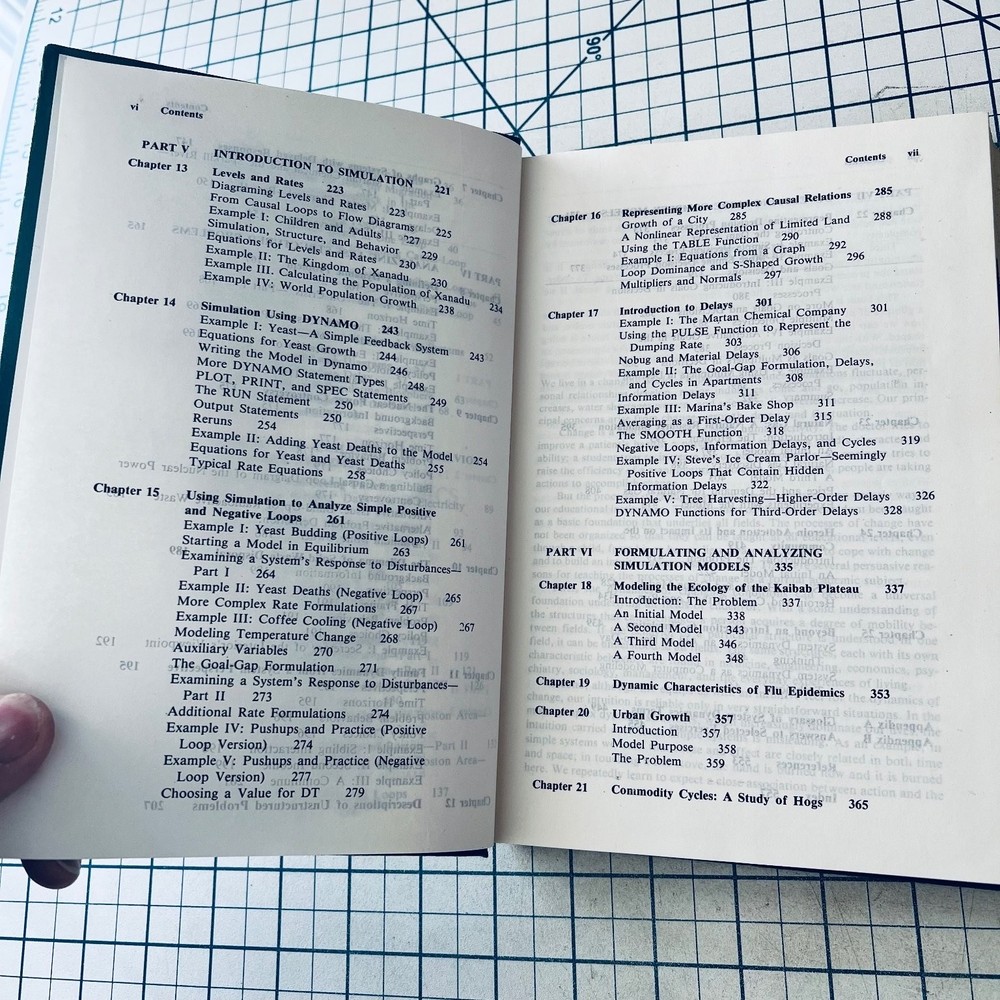 vi Contents
PART V INTRODUCTION TO SIMULATION 221
Chapter 13 Levels and Rates 223
Diagraming Levels and Rates 223
From Causal Loops to Flow Diagrams 225
Example I: Children and Adults 227
Simulation, Structure, and Behavior 229
Equations for Levels and Rates 230
Example II: The Kingdom of Xanadu 230
Example III. Calculating the Population of Xanadu 234
Example IV: World Population Growth 238
Chapter 14 Simulation Using DYNAMO 243
Example I: Yeast—A Simple Feedback System 243
Equations for Yeast Growth 244
Writing the Model in Dynamo 246
More DYNAMO Statement Types 248
PLOT, PRINT, and SPEC Statements 249
The RUN Statement 250
Output Statements 250
Reruns 254
Example II: Adding Yeast Deaths to the Model 254
Equations for Yeast and Yeast Deaths 255
Typical Rate Equations 258
Chapter 15 Using Simulation to Analyze Simple Positive
and Negative Loops 261
Example I: Yeast Budding (Positive Loops) 261
Starting a Model in Equilibrium 263
Examining a System's Response to Disturbances—
Part I 264
Example II: Yeast Deaths (Negative Loop) 265
More Complex Rate Formulations 267
Example III: Coffee Cooling (Negative Loop) 267
Modeling Temperature Change 268
Auxiliary Variables 270
The Goal-Gap Formulation 271
Examining a System's Response to Disturbances—
Part II 273
Additional Rate Formulations 274
Example IV: Pushups and Practice (Positive
Loop Version) 274
Example V: Pushups and Practice (Negative
Loop Version) 277
Choosing a Value for DT 279
Contents vii
Chapter 16 Representing More Complex Causal Relations 285
Growth of a City 285
A Nonlinear Representation of Limited Land 288
Using the TABLE Function 290
Example I: Equations from a Graph 292
Loop Dominance and S-Shaped Growth 296
Multipliers and Normals 297
Chapter 17 Introduction to Delays 301
Example I: The Martan Chemical Company 301
Using the PULSE Function to Represent the
Dumping Rate 303
Nobug and Material Delays 306
Example II: The Goal-Gap Formulation, Delays,
and Cycles in Apartments 308
Information Delays 311
Example III: Marina's Bake Shop 311
Averaging as a First-Order Delay 315
The SMOOTH Function 318
Negative Loops, Information Delays, and Cycles 319
Example IV: Steve's Ice Cream Parlor—Seemingly
Positive Loops That Contain Hidden
Information Delays 322
Example V: Tree Harvesting—Higher-Order Delays 326
DYNAMO Functions for Third-Order Delays 328
PART VI FORMULATING AND ANALYZING
SIMULATION MODELS 335
Chapter 18 Modeling the Ecology of the Kaibab Plateau 337
Introduction: The Problem 337
An Initial Model 338
A Second Model 343
A Third Model 346
A Fourth Model 348
Chapter 19 Dynamic Characteristics of Flu Epidemics 353
Chapter 20 Urban Growth 357
Introduction 357
Model Purpose 358
The Problem 359
Chapter 21 Commodity Cycles: A Study of Hogs 365
12
90°